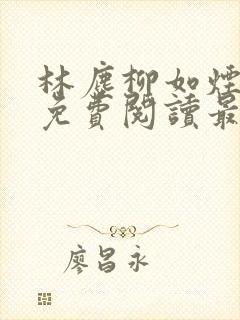 林塵柳如煙
免費閱讀最
廖昌永